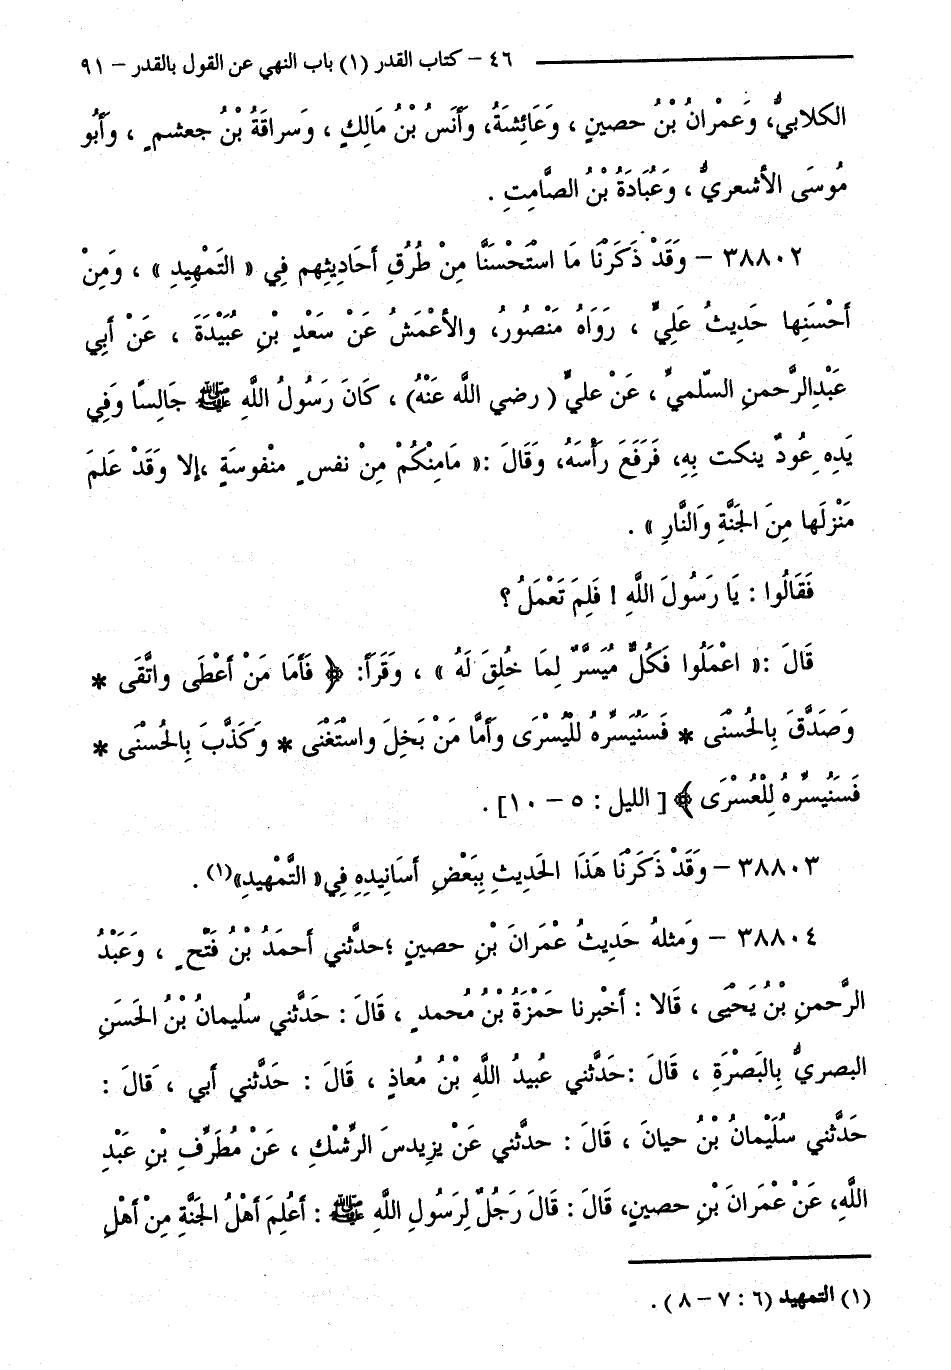 ٤٦ – كتاب القدر (١) باب النهي عن القول بالقدر – ٩١
الكلابيُّ، وَعمْرانُ بْنُ حصينٍ ، وَعَائِشَةُ، وَأَنَسُ بْنُ مَالِكٍ ، وَسراقَةُ بْنُ جعشمٍ ، وَأَبُو
مُوسَى الأشعريُّ ، وَعُبَادَةُ بْنُ الصَّامِتِ .
٣٨٨٠٢ – وَقَدْ ذَكَرْنَا مَا اسْتَحْسَنَّا مِنْ طُرُقِ أحَادِيثِهم فِي « التَمْهِيدِ » ، وَمِنْ
أحْسَنِها حَدِيثُ عَلِيٍّ ، رَوَاهُ مَنْصُورُ، والأعْمَشُ عَنْ سَعْدٍ بْنِ عُبَيْدَةَ ، عَنْ أَبِي
عَبْدِالرَّحمنِ السّلميِّ ، عَنْ عليٍّ ( رضي اللَّه عَنْهُ) ، كَانَ رَسُولُ اللَّهِ ﷺ جَالِسًا وَفِي
يَدِهِ عُودٌ ينكت بِهِ، فَرَفَعَ رَأْسَهُ، وَقَالَ :« مَامِنْكُمْ مِنْ نفسٍ منْفوسَةٍ ،إلا وَقَدْ عَلمَ
مَنْزِلَها مِنَ الجَنَّةِ وَالنَّارِ » .
فَقَالُوا : يَا رَسُولَ اللَّهِ ! فَلِمَ تَعْمَلُ ؟
قَالَ :« اعْمَلُوا فَكُلٌّ مُيَسَّرٌ لِمَا خُلِقَ لَهُ » ، وَقَرَأَ: ﴿ فَأَمَا مَنْ أَعْطَى واتَّقَى *
وَصَدَّقَ بِالحُسْنَى * فَسَنُيَسِّرُهُ للْيُسْرَى وأَمَّا مَنْ بَخِلَ واسْتَغْنَى * وَكَذَّبَ بِالحُسْنَى *
فَسَنُيسِّرُهُ لِلْعُسْرَى ﴾ [ الليل : ٥ – ١٠] .
٣٨٨٠٣ – وَقَدْ ذَكَرْنَا هَذَا الحَدِيثِ بِبَعْضِ أسَانِيدِهِ فِي« التَّمْهِيدِ»(١) .
٣٨٨٠٤ – وَمثلهُ حَدِيثُ عَمْرَانَ بْنِ حصينٍ ؛حدَّثني أحمَدُ بْنُ فَتْحٍ ، وَعَبْدُ
الرَّحمنِ بْنُ يَحْيَى ، قَالا : أخْبرنا حَمْزَةُ بْنُ مُحمدٍ ، قَالَ : حَدَّثني سُليمانُ بْنُ الحَسَنِ
البصريُّ بِالبَصْرَةِ ، قَالَ :حَدَّثني عُبيدُ اللَّهِ بْنُ مُعاذٍ ، قَالَ : حَدَّثني أبي ، قَالَ :
حَدَّثني سُلَيْمانُ بْنُ حيانَ ، قَالَ : حدَّثني عَنْ يزِيدسَ الرِّشْكِ ، عَنْ مُطَرِّفِ بْنِ عَبْدِ
اللَّهِ، عَنْ عَمْرَانَ بْنِ حصينٍ، قَالَ : قَالَ رَجُلٌ لِرَسُولِ اللَّهِ ﷺ : أعُلِمَ أَهْلُ الجَنَّةِ مِنْ أَهْلِ
(١) التمهيد (٦ : ٧ – ٨ ) .